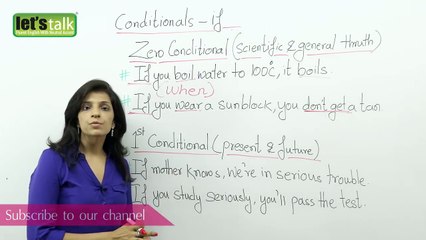 let's talk
Fluent English With Neutral Accent
Conditionals - If
Zero Conditional (scientific & general thruth)
# If you boil water to 100°C, it boils.
(when)
# If you wear a sunblock, you don't get a tan
1st Conditional (present & future)
If mother knows, we're in serious trouble.
If you study seriously, you'll pass the test.
Subscribe to our channel